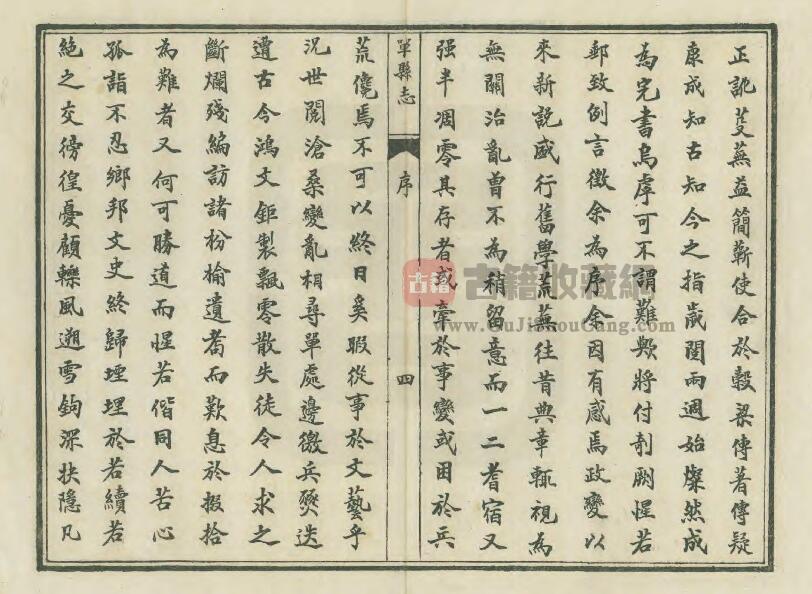 正訛芟蕪益簡蘄使合於穀梁傳著傳疑
康成知古知今之指歲閱兩週始燦然成
為完書烏虖可不謂難歟將付剞劂惺若
郵致例言徵余為序余因有感焉政變以
來新說盛行舊學荒蕪往昔典章輒視為
無關治亂曾不為稍留意而一二耆宿又
强半凋零其存者或牽於事變或困於兵
單縣志
序
四
荒儳焉不可以終日奚暇從事於文藝乎
況世閱滄桑變亂相尋單處邊徼兵燹迭
遭古今鴻文鉅製飄零散失徒令人求之
斷爛殘編訪諸枌榆遺耈而歎息於掇拾
為難者又何可勝道而惺若偕同人苦心
孤詣不忍鄉邦文史終歸堙埋於若續若
絶之交徬徨憂顧轢風遡雪鉤深抉隱凡
古籍
古籍收藏網
www.GuJiShouCang.com